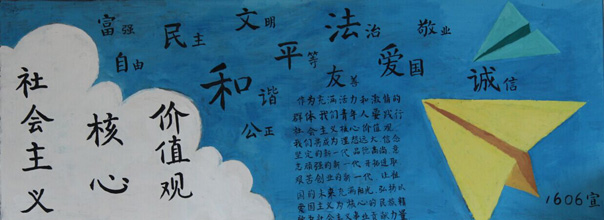 社会主义
核心
价值观
富强
民主
文明
和谐
自由
平等
公正
法治
爱国
敬业
诚信
友善
作为充满活力和激情的
群体我们青年人要践行
社会主义核心价值观
我们要成为理想远大信念
坚定的新一代品德高尚意
志顽强的新一代开拓进取
艰苦创业的新一代让祖
国的未来充满阳光弘扬以
爱国主义为核心的民族精
1606宣